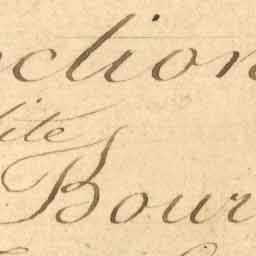 ction
lité
Bour